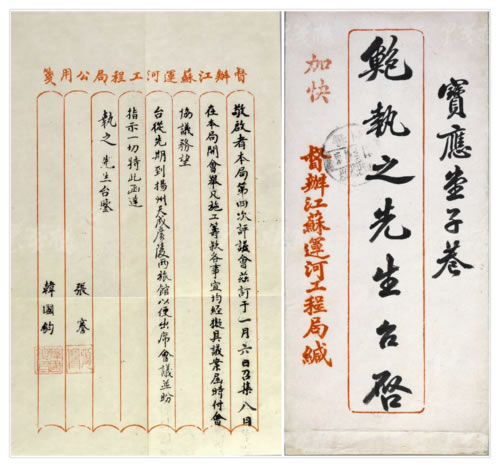 督辦江蘇運河工程局公用箋
敬啟者本局第四次評議會茲訂于一月六日召集八日
在本局開會舉凡施工籌款各事宜均經擬具議案屆時付會
協議務望
台從先期到揚州天成廣陵兩旅館以便出席會議並盼
指示一切特此函達
執之先生台鑒
張謇
韓國鈞
寶應堂子巷
鮑執之先生台啓
加快
督辦江蘇運河工程局緘